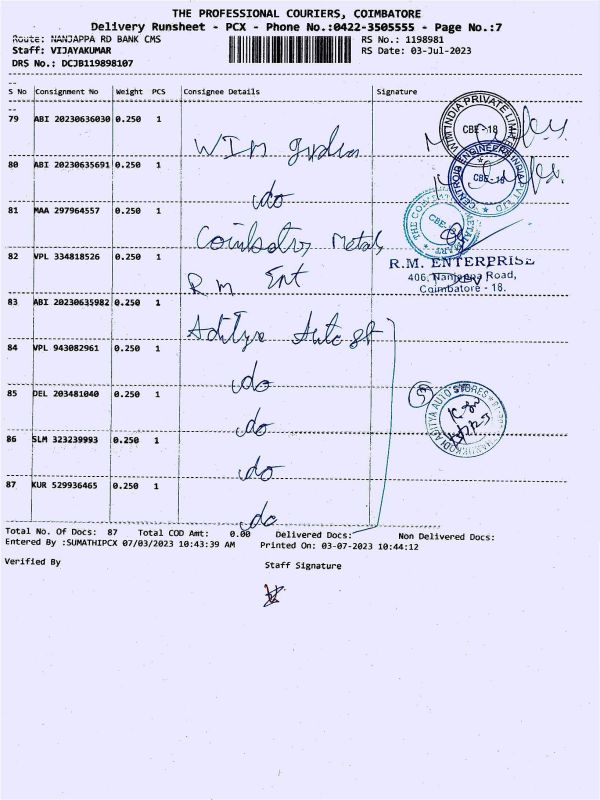 THE PROFESSIONAL COURIERS, COIMBATORE
Delivery Runsheet - PCX - Phone No.:0422-3505555 - Page No.:7
Route: NANJAPPA RD BANK CMS
RS No.: 1198981
Staff: VIJAYAKUMAR
RS Date: 03-Jul-2023
DRS No.: DCJB119898107
S No Consignment No Weight PCS Consignee Details Signature
79 ABI 20230636030 0.250 1
WIM India
WIMTINDIA PRIVATE LIMITED
CBE-18
80 ABI 20230635691 0.250 1
do
CENTROID ENGINEERS INDIA PVT LTD
CBE-18
81 MAA 297964557 0.250 1
Coimbatore Metals
CBE
82 VPL 334818526 0.250 1
Rm Ent
R.M. ENTERPRISE
406, Nanjappa Road,
Coimbatore - 18.
83 ABI 20230635982 0.250 1
Aditya Auto st
84 VPL 943082961 0.250 1
do
85 DEL 203481040 0.250 1
do
5
ADITYA AUTO STORES
86 SLM 323239993 0.250 1
do
87 KUR 529936465 0.250 1
do
Total No. Of Docs: 87 Total COD Amt: 0.00 Delivered Docs: Non Delivered Docs:
Entered By :SUMATHIPCX 07/03/2023 10:43:39 AM Printed On: 03-07-2023 10:44:12
Verified By
Staff Signature